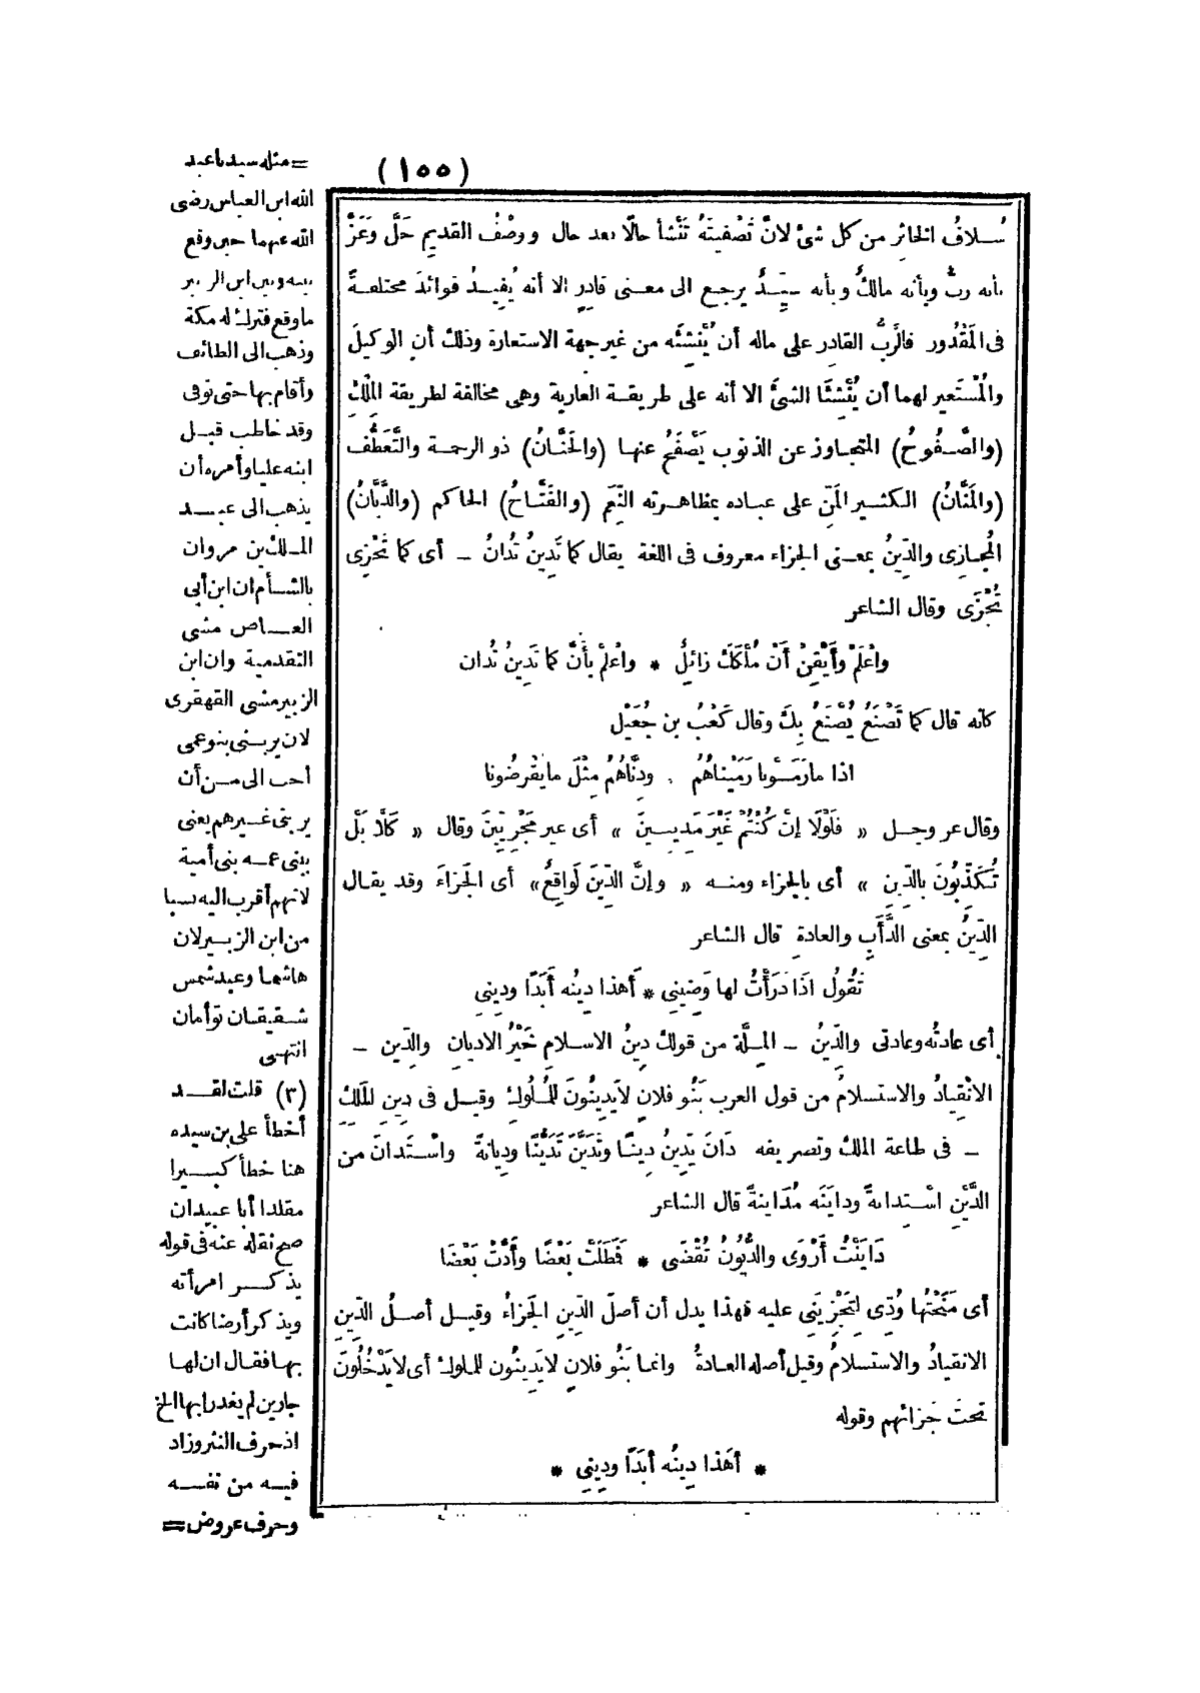 (١٥٥)
سُلافُ الخاثِر من كل شئ لانّ تَصْفيتَهُ تَنْشأ حالًا بعد حال ووصْفُ القديمِ جَلَّ وعَزَّ
بأنه ربٌّ وبأنه مالكٌ وبأنه سيّدٌ يرجع الى معنى قادِرٍ الا أنه يُفِيدُ فوائدَ مختلفةً
فى المَقْدُور فالرَّبُّ القادِر على ماله أن يُنْشِئَه من غير جهة الاستعارة وذلك أن الوكيلَ
والمُسْتَعير لهما أن يُنْشِئَا الشئَ الا أنه على طريقة العارية وهى مخالفة لطريقة المِلْكِ
(والصَّفُوحُ) المتجاوز عن الذنوب يَصْفَحُ عنها (والحَنَّانُ) ذو الرحمة والتَّعَطُّف
(والمَنَّانُ) الكثير المَنِّ على عباده بمظاهرته النِّعَم (والفَتَّاحُ) الحاكم (والدَّيَّانُ)
المُجازِى والدِّينُ بمعنى الجزاء معروف فى اللغة يقال كما تَدِينُ تُدانُ ــ أى كما تَجْزِى
تُجْزَى وقال الشاعر
واعْلَمْ وأَيْقِنْ أَنَّ مُلْكَكَ زائلٌ * واعْلَمْ بأَنَّ كما تَدِينُ تُدان
كأنه قال كما تَصْنَعُ يُصْنَعُ بِكَ وقال كَعْبُ بن جُعَيْل
اذا ما رَمَوْنا رَمَيْناهُمُ * ودِنَّاهُمُ مِثْلَ ما يَقْرِضُونا
وقال عز وجل « فَلَوْلَا إنْ كُنْتُمْ غَيْرَ مَدِينِينَ » أى غير مَجْزِيِّينَ وقال « كَلَّا بَلْ
تُكَذِّبُونَ بالدِّينِ » أى بالجزاء ومنه « وإنَّ الدِّينَ لَواقِعٌ» أى الجَزاءَ وقد يقال
الدِّينُ بمعنى الدَّأَبِ والعادةِ قال الشاعر
تَقُولُ اذَا دَرَأْتُ لها وَضِينِى * أَهذا دِينُه أَبَدًا ودِينِى
أى عادتُه وعادتى والدِّينُ ــ المِلَّة من قولك دِينُ الاسلامِ خَيْرُ الاديانِ والدِّين ــ
الانْقِيادُ والاستسلامُ من قول العرب بَنُو فلانٍ لايَدِينُونَ للمُلُوكِ وقيل فى دِينِ المَلِكِ
ــ فى طاعة الملك وتصريفه دَانَ يَدِينُ دِينًا وتَدَيَّنَ تَدَيُّنًا ودِيانةً واسْتَدانَ من
الدَّيْنِ اسْتِدانةً وداينَه مُدَاينةً قال الشاعر
دَايَنْتُ أَرْوَى والدُّيُونُ تُقْضَى * فَمَطَلَتْ بَعْضًا وأَدَّتْ بَعْضَا
أى مَنَحْتُها وُدِّى لِتَجْزِيَنِى عليه فهذا يدل أن أصلَ الدِّينِ الجَزاءُ وقيل أصلُ الدِّينِ
الانقيادُ والاستسلامُ وقيل أصله العادةُ وانما بَنُو فلانٍ لايَدِينُون للملوك أى لايَدْخُلُونَ
تحتَ جَزائهم وقوله
* أهَذا دِينُه أبَدًا ودِينِى *
= مثله سيدنا عبد
الله ابن العباس رضى
الله عنهما حين وقع
بينه وبين ابن الزبير
ما وقع فترك له مكة
وذهب الى الطائف
وأقام بها حتى توفى
وقد خاطب قبل
ابنه عليا وأمره أن
يذهب الى عبد
الملك بن مروان
بالشأم ان ابن أبى
العاص مشى
التقدمية وان ابن
الزبير مشى القهقرى
لان يربنى بنو عمى
أحب الى من أن
يربنى غيرهم يعنى
ببنى عمه بنى أمية
لانهم أقرب اليه نسبا
من ابن الزبير لان
هاشما وعبد شمس
شقيقان توأمان
انتهى
(٣) قلت لقد
أخطأ على بن سيده
هنا خطأ كبيرا
مقلدا أبا عبيد ان
صح نقله عنه فى قوله
يذكر امرأته
ويذكر أرضا كانت
بها فقال ان لها
جارين لم يغدرا بها الخ
اذ حرف النثر وزاد
فيه من نفسه
وحرف عروض =